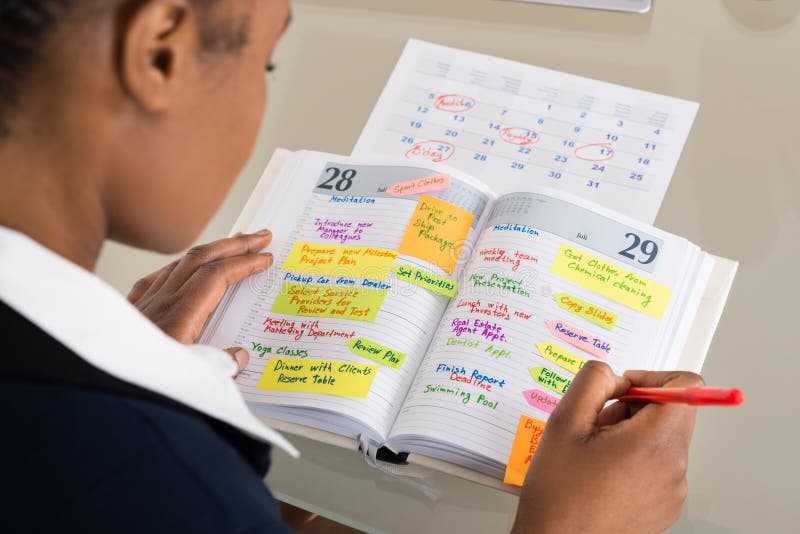 1 2 3 4
5 Audit 6 7 8 9 10 11
12 13 14 Payroll 15 16 17 18
19 20 21 22 23 24 25
26 27 28 29 30 31
B'day
28
Juli
Sport Clothes
Meditation
Drive to
Post
Ship
Package
Introduce new
Manager to
Colleagues
Prepare new Milestone
Project Plan
Set Priorities
Pickup Car from Dealer
Select Service
Providers for
Review and Test
Meeting with
Marketing Department
Review Plan
Yoga Classes
Dinner with Clients
Reserve Table
Juli
29
Meditation
Weekly team
meeting
Got Clothes from
Chemical cleaning
New Project
Presentation
Copy Slides
Lunch with new
Investors
Reserve Table
Real Estate
Agent Appt.
Dentist Appt.
Prepare D
Follow
with E
Finish Report
Deadline
Updat
Swimming Pool
Buy